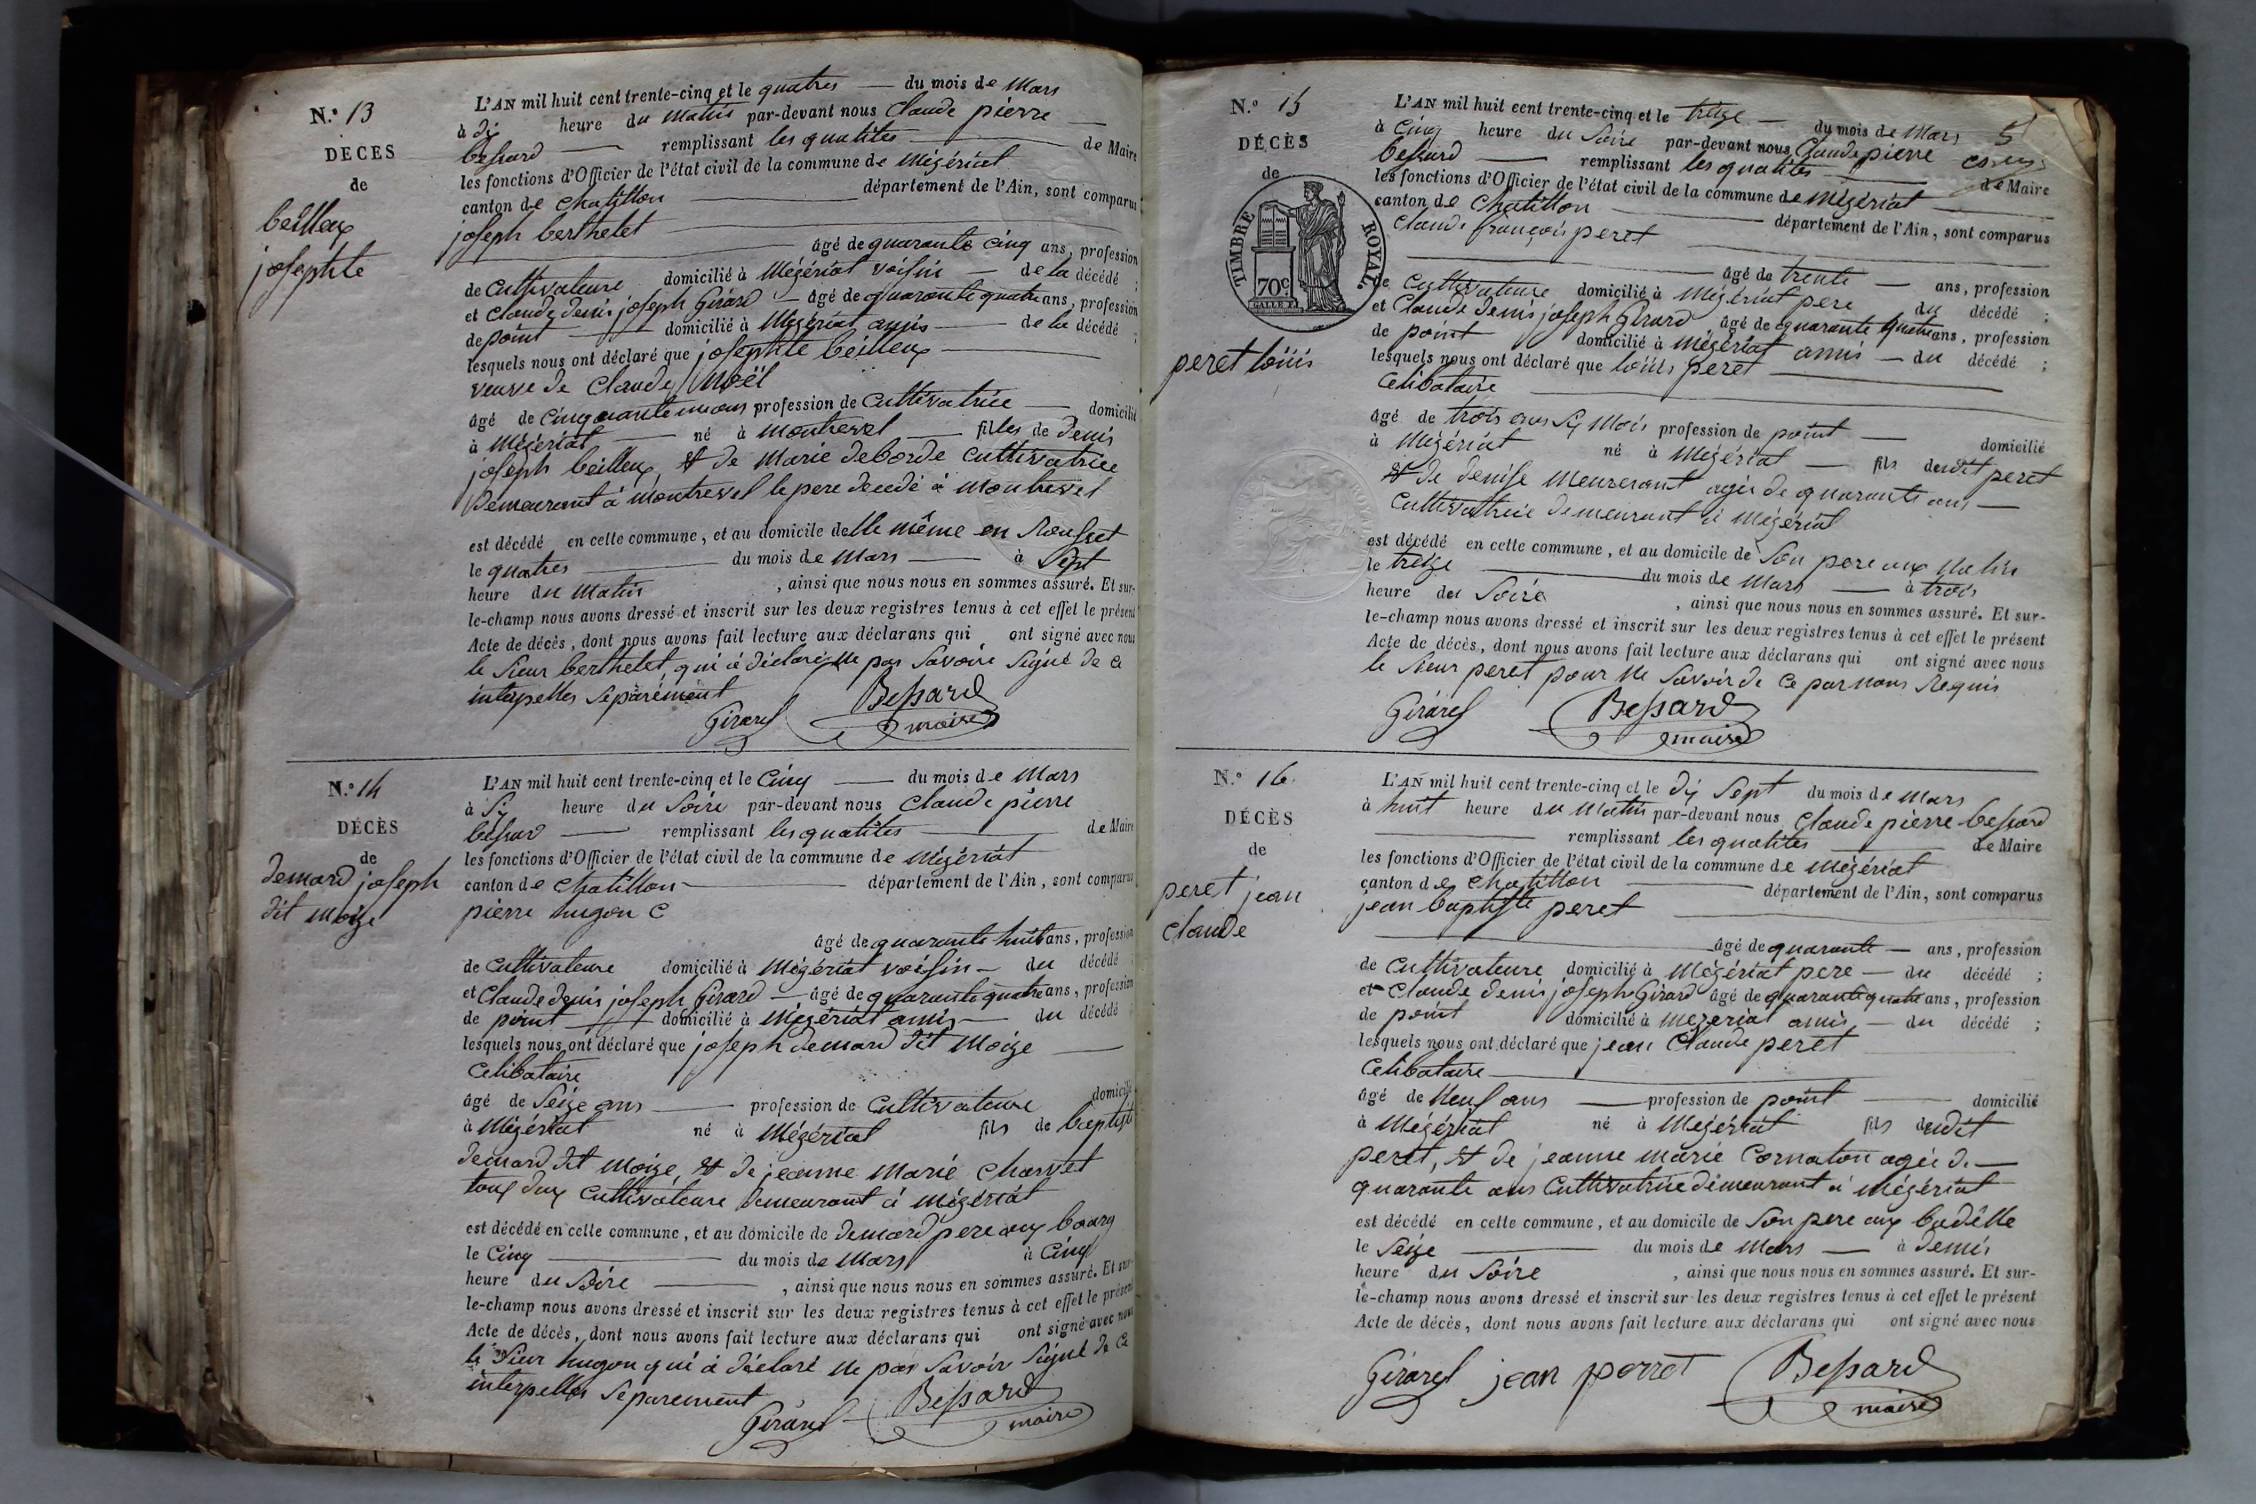 N.° 13
DÉCÈS
de
beilleux
josephte
L'AN mil huit cent trente-cinq et le quatres du mois de Mars
à dix heure du Matin par-devant nous Claude pierre
bessard remplissant les qualités de Maire
les fonctions d'Officier de l'état civil de la commune de Mézériat
canton de Chatillon département de l'Ain, sont comparus
joseph berthelet
âgé de quarante cinq ans, profession
de Cultivateure domicilié à Mézériat voisin de la décédé ;
et Claude denis joseph Girard âgé de quarante quatre ans, profession
de point domicilié à Mézériat amis de la décédé ;
lesquels nous ont déclaré que josephte beilleux
veuve de Claude Moël
âgé de Cinquante un ans profession de Cultivatrice domicilié
à Mézériat né à Montrevel filles de denis
joseph beilleux, et de Marie deborde Cultivatrice
Demeurant à Montrevel le pere décedé à Montrevel
est décédé en cette commune, et au domicile de elle même en Rousset
le quatres du mois de Mars à Sept
heure du Matin , ainsi que nous nous en sommes assuré. Et sur-
le-champ nous avons dressé et inscrit sur les deux registres tenus à cet effet le présent
Acte de décès, dont nous avons fait lecture aux déclarans qui ont signé avec nous
le Sieur berthelet, qui à déclaré ne pas Savoire Signé de ce
interpelles Séparément
Girard Bessard
maire
N.° 14
DÉCÈS
de
demard joseph
dit moize
L'AN mil huit cent trente-cinq et le Cinq du mois de Mars
à Six heure du Soire par-devant nous Claude pierre
bessard remplissant les qualités de Maire
les fonctions d'Officier de l'état civil de la commune de Mézériat
canton de Chatillon département de l'Ain, sont comparus
pierre hugon C
âgé de quarante huit ans, profession
de Cultivateure domicilié à Mézériat voisin du décédé
et Claude denis joseph Girard âgé de quarante quatre ans, profession
de point domicilié à Mézériat amis du décédé
lesquels nous ont déclaré que joseph demard dit Moize
Celibataire
âgé de Seize ans profession de Cultivateure domicilié
à Mézériat né à Mézériat fils de baptiste
demard dit Moize, et de jeanne Marie Charvet
tous deux Cultivateure Demeurant à Mézériat
est décédé en cette commune, et au domicile de demard pere aux bourg
le Cinq du mois de Mars à Cinq
heure du Soire , ainsi que nous nous en sommes assuré. Et sur-
le-champ nous avons dressé et inscrit sur les deux registres tenus à cet effet le présent
Acte de décès, dont nous avons fait lecture aux déclarans qui ont signé avec nous
le Sieur hugon qui à déclaré ne pas Savoir Signé de Ce
interpelles Séparement
Girard Bessard
maire
N.° 15
DÉCÈS
de
TIMBRE ROYAL
70c
peret loüis
5
L'AN mil huit cent trente-cinq et le treize du mois de Mars
à Cinq heure du Soire par-devant nous Claude pierre
bessard remplissant les qualités de Maire
les fonctions d'Officier de l'état civil de la commune de Mézériat
canton de Chatillon département de l'Ain, sont comparus
Claude françois peret
âgé de trente ans, profession
de Cultivateure domicilié à Mézériat pere du décédé ;
et Claude Denis joseph Girard âgé de quarante quatre ans, profession
de point domicilié à Mézériat amis du décédé ;
lesquels nous ont déclaré que loüis peret
Celibataire
âgé de trois ans Six Mois profession de point domicilié
à Mézériat né à Mézériat fils dudit peret
et de denise Meurerant agée de quarante ans
Cultivatrice demeurant à Mézériat
est décédé en cette commune, et au domicile de Son pere aux
le treize du mois de Mars à trois
heure du Soire , ainsi que nous nous en sommes assuré. Et sur-
le-champ nous avons dressé et inscrit sur les deux registres tenus à cet effet le présent
Acte de décès, dont nous avons fait lecture aux déclarans qui ont signé avec nous
le Sieur peret pour ne Savoir de Ce par nous Requis
Girard Bessard
maire
N.° 16.
DÉCÈS
de
peret jean
claude
L'AN mil huit cent trente-cinq et le dix Sept du mois de Mars
à huit heure du Matin par-devant nous Claude pierre bessard
remplissant les qualités de Maire
les fonctions d'Officier de l'état civil de la commune de Mézériat
canton de Chatillon département de l'Ain, sont comparus
jean baptiste peret
âgé de quarante ans, profession
de Cultivateure domicilié à Mézériat pere du décédé ;
et Claude denis joseph Girard âgé de quarante quatre ans, profession
de point domicilié à Mézériat amis du décédé ;
lesquels nous ont déclaré que jean Claude peret
Celibataire
âgé de Neuf ans profession de point domicilié
à Mézériat né à Mézériat fils dudit
peret, et de jeanne Marie Cornaton agée de
quarante ans Cultivatrice demeurant à Mézériat
est décédé en cette commune, et au domicile de Son pere aux badelle
le Seize du mois de Mars à demis
heure du Soire , ainsi que nous nous en sommes assuré. Et sur-
le-champ nous avons dressé et inscrit sur les deux registres tenus à cet effet le présent
Acte de décès, dont nous avons fait lecture aux déclarans qui ont signé avec nous
Girard jean perret Bessard
maire